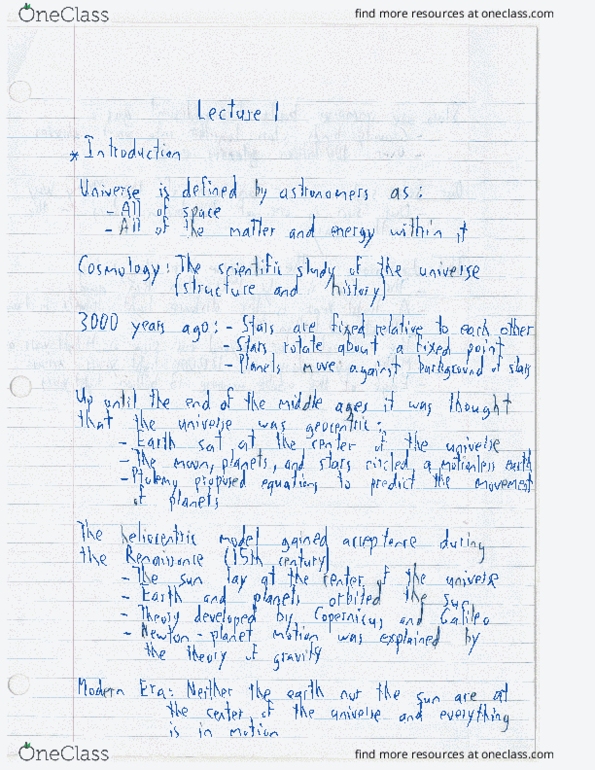 OneClass
find more resources at oneclass.com
Lecture 1
* Introduction
Universe is defined by astronomers as:
- All of space
- All of the matter and energy within it
Cosmology: The scientific study of the universe
(structure and history)
3000 years ago: - Stars are fixed relative to each other
- Stars rotate about a fixed point
- Planets move against background of stars
Up until the end of the middle ages it was thought
that the universe was geocentric:
- Earth sat at the center of the universe
- The moon, planets, and stars circled a motionless earth
- Ptolemy proposed equations to predict the movement
of planets
The heliocentric model gained acceptence during
the Renaissance (15th century)
- The sun lay at the center of the universe
- Earth and planets orbited the sun
- Theory developed by Copernicus and Galileo
- Newton - planet motion was explained by
the theory of gravity
Modern Era: Neither the earth nor the sun are at
the center of the universe and everything
is in motion
OneClass
find more resources at oneclass.com